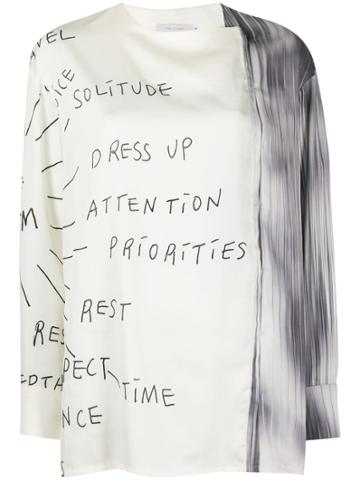 AVEL
NCE
SOLiTUDE
DRESS UP
ATTENTiON
PRiORiTiES
REST
RES
PECT
TiME
EDTA
NCE